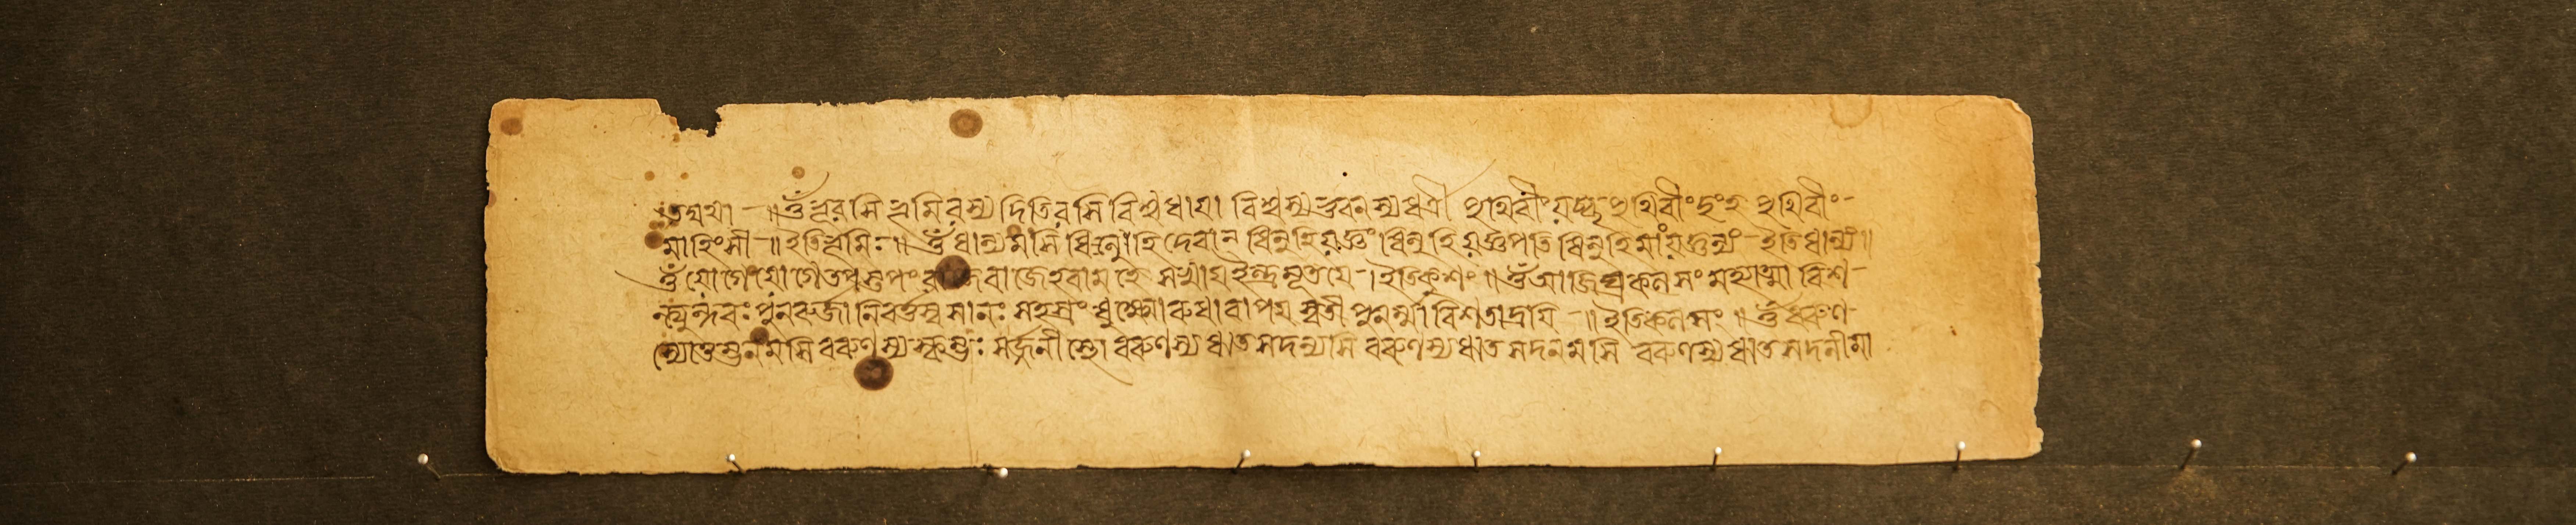 তদ্যথা - ॥ ওঁ ভূরসি ভূমিরস্যদিতিরসি বিশ্বধায়া বিশ্বস্যভুবনস্যধর্ত্রী পৃথিবীং যচ্ছ পৃথিবীং দৃংহ পৃথিবীং-
মাহিংসী - ॥ ইতিভূমিঃ ॥ ওঁ ধান্যমসি ধিনুহি দেবান ধিনুহি যজ্ঞং ধিনুহি যজ্ঞপতি ধিনুহিমাং যজ্ঞন্যং - ইতিধান্যং ॥
ওঁ যোগে যোগেতবস্তপং বাজেবাজেহবামহে সখায়ইন্দ্রমূতয়ে - । ইতিকুশং ॥ ওঁ আজিঘ্রকলসং মহ্যাত্মা বিশ-
ন্ত্বিন্দবঃ পুনরুর্জা নিবর্ত্তস্ব সানঃ সহস্রং ধুক্ষ্বোরুধারাপয়স্বতী পুনর্ম্মাবিশতাদ্রয়ি - ॥ ইতিকলসং ॥ ওঁ বরুণ-
স্যোত্তম্ভনমসি বরুণস্যস্কম্ভঃ সর্জ্জনীস্থো বরুণস্যঋতসদন্যসি বরুণস্যঋতসদনমসি বরুণস্যঋতসদনীমা